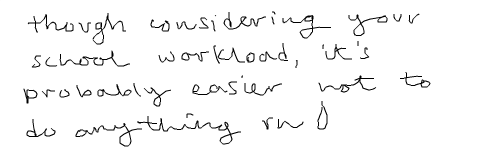 though considering your
school workload, it's
probably easier not to
do anything rn